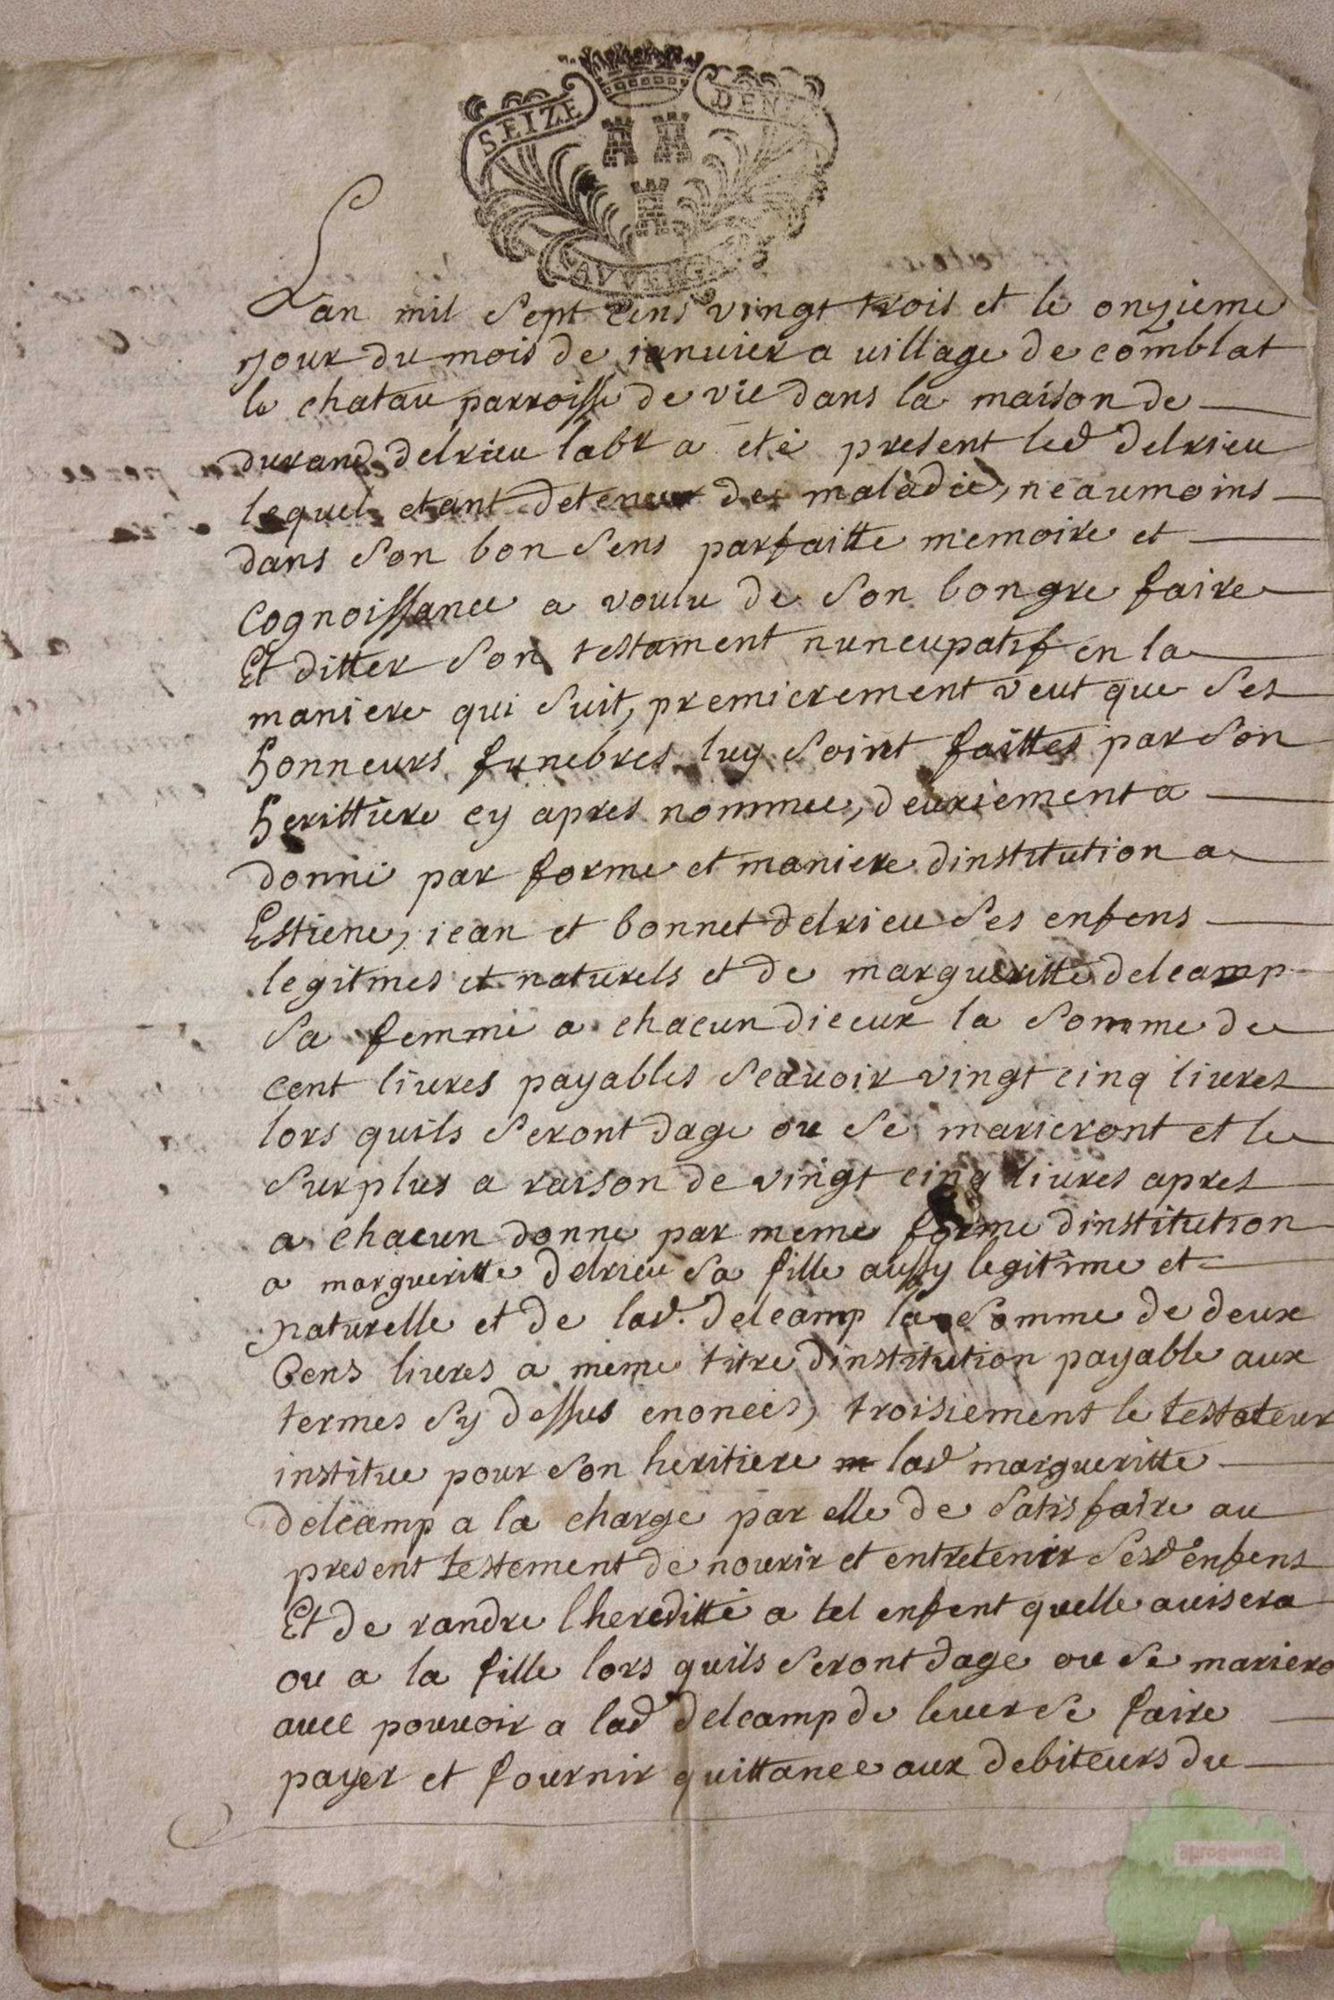 SEIZE DEN
AUVERG
Lan mil Sept Cens vingt trois et le onzieme
jour du mois de ianuier a uillage de comblat
le chatau parroisse de vic dans la maison de
durand delrieu labr a eté present led delrieu
lequel etant detenu de maladie, neaumoins
dans Son bon Sens parfaitte memoire et
cognoissance a voulu de Son bon gre faire
Et ditter Son testament nuncupatif en la
maniere qui Suit, premierement veut que Ses
honneurs funebres luy Soint faittes par Son
herittiere cy apres nommee, deuxiement a
donné par forme et maniere dinstitution a
Estiene, iean et bonnet delrieu Ses enfens
legitmes et naturels et de margueritte delcamp
Sa femme a chacun dieeux la Somme de
cent liures payables Scauoir vingt cinq liures
lors quils Seront dage ou Se marieront et le
Surplus a raison de vingt cinq liures apres
a chacun donne par meme forme dinstitution
a margueritte delrieu Sa fille aussy legitime et
naturelle et de lad. delcamp la Somme de deux
Cens liures a meme titre dinstitution payable aux
termes Sy dessus enonces, troisiement le testateur
institue pour Son heritiere lad margueritte
delcamp a la charge par elle de Satisfaire au
present testement de nourir et entretenir Sesd enfens
Et de randre lhereditté a tel enfent quelle auisera
ou a la fille lors quils Seront dage ou Se mariero
auec pouuoir a lad delcamp de leuer Se faire
payer et fournir quittance aux debiteurs du
aprogemere